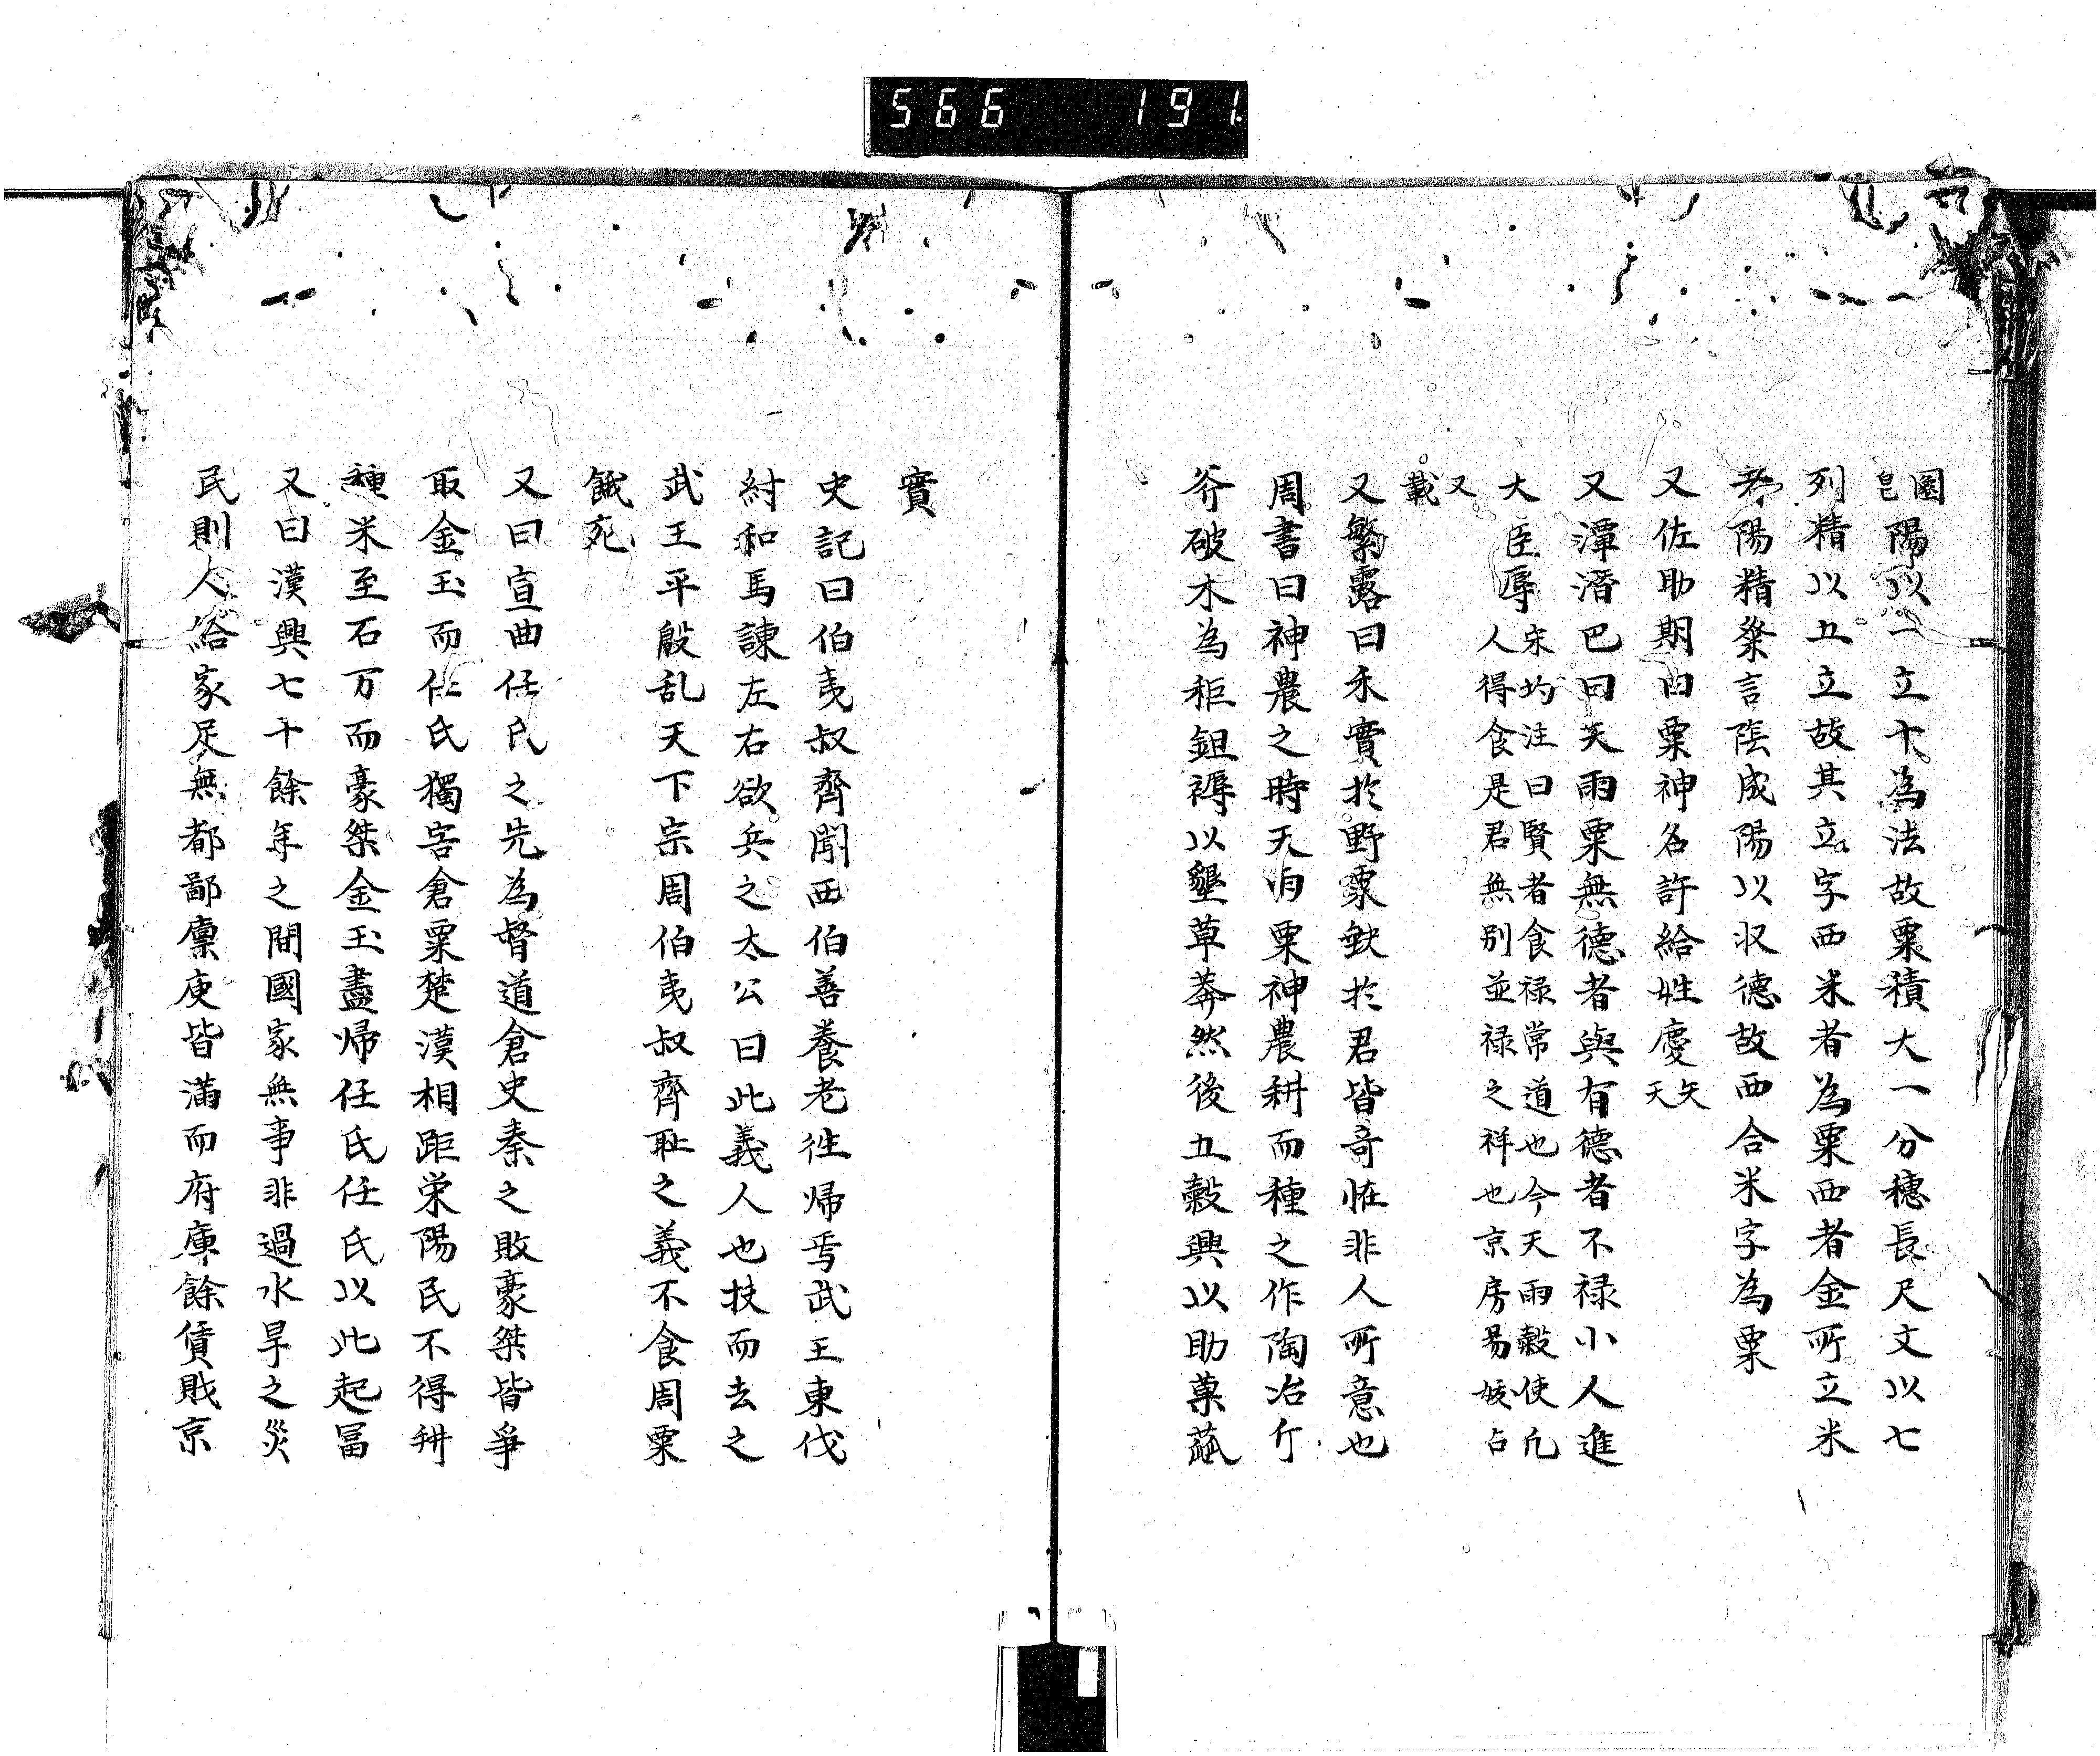 566 191
圖皀陽以一立十為法故粟積大一分穗長尺文以七
列精以五立故其立字西米者為粟西者金所立米
者陽精粢言陰成陽以収德故西合米字為粟
又佐助期曰粟神名許給姓慶天矢
又潭潛巴曰天雨粟無德者與有德者不祿小人進
大臣辱宋均注曰賢者食祿常道也今天雨穀使凡
人得食是君無別並祿之祥也京房易妖占
又載
又繁露曰禾實於野粟缺於君皆奇恠非人所意也
周書曰神農之時天雨粟神農耕而種之作陶冶斤
斧破木為耜鉏褥以墾草莽然後五穀興以助菓蓏
實
史記曰伯夷叔齊聞西伯善養老往歸焉武王東伐
紂和馬諫左右欲兵之太公曰此義人也扶而去之
武王平殷乱天下宗周伯夷叔齊耻之義不食周粟
餓死
又曰宣曲任氏之先為督道倉史秦之敗豪桀皆爭
取金玉而任氏獨窖倉粟楚漢相距栄陽民不得耕
種米至石万而豪桀金玉盡帰任氏任氏以此起冨
又曰漢興七十餘年之間國家無事非過水旱之災
民則人給家足無都鄙廩庾皆滿而府庫餘貨賎京